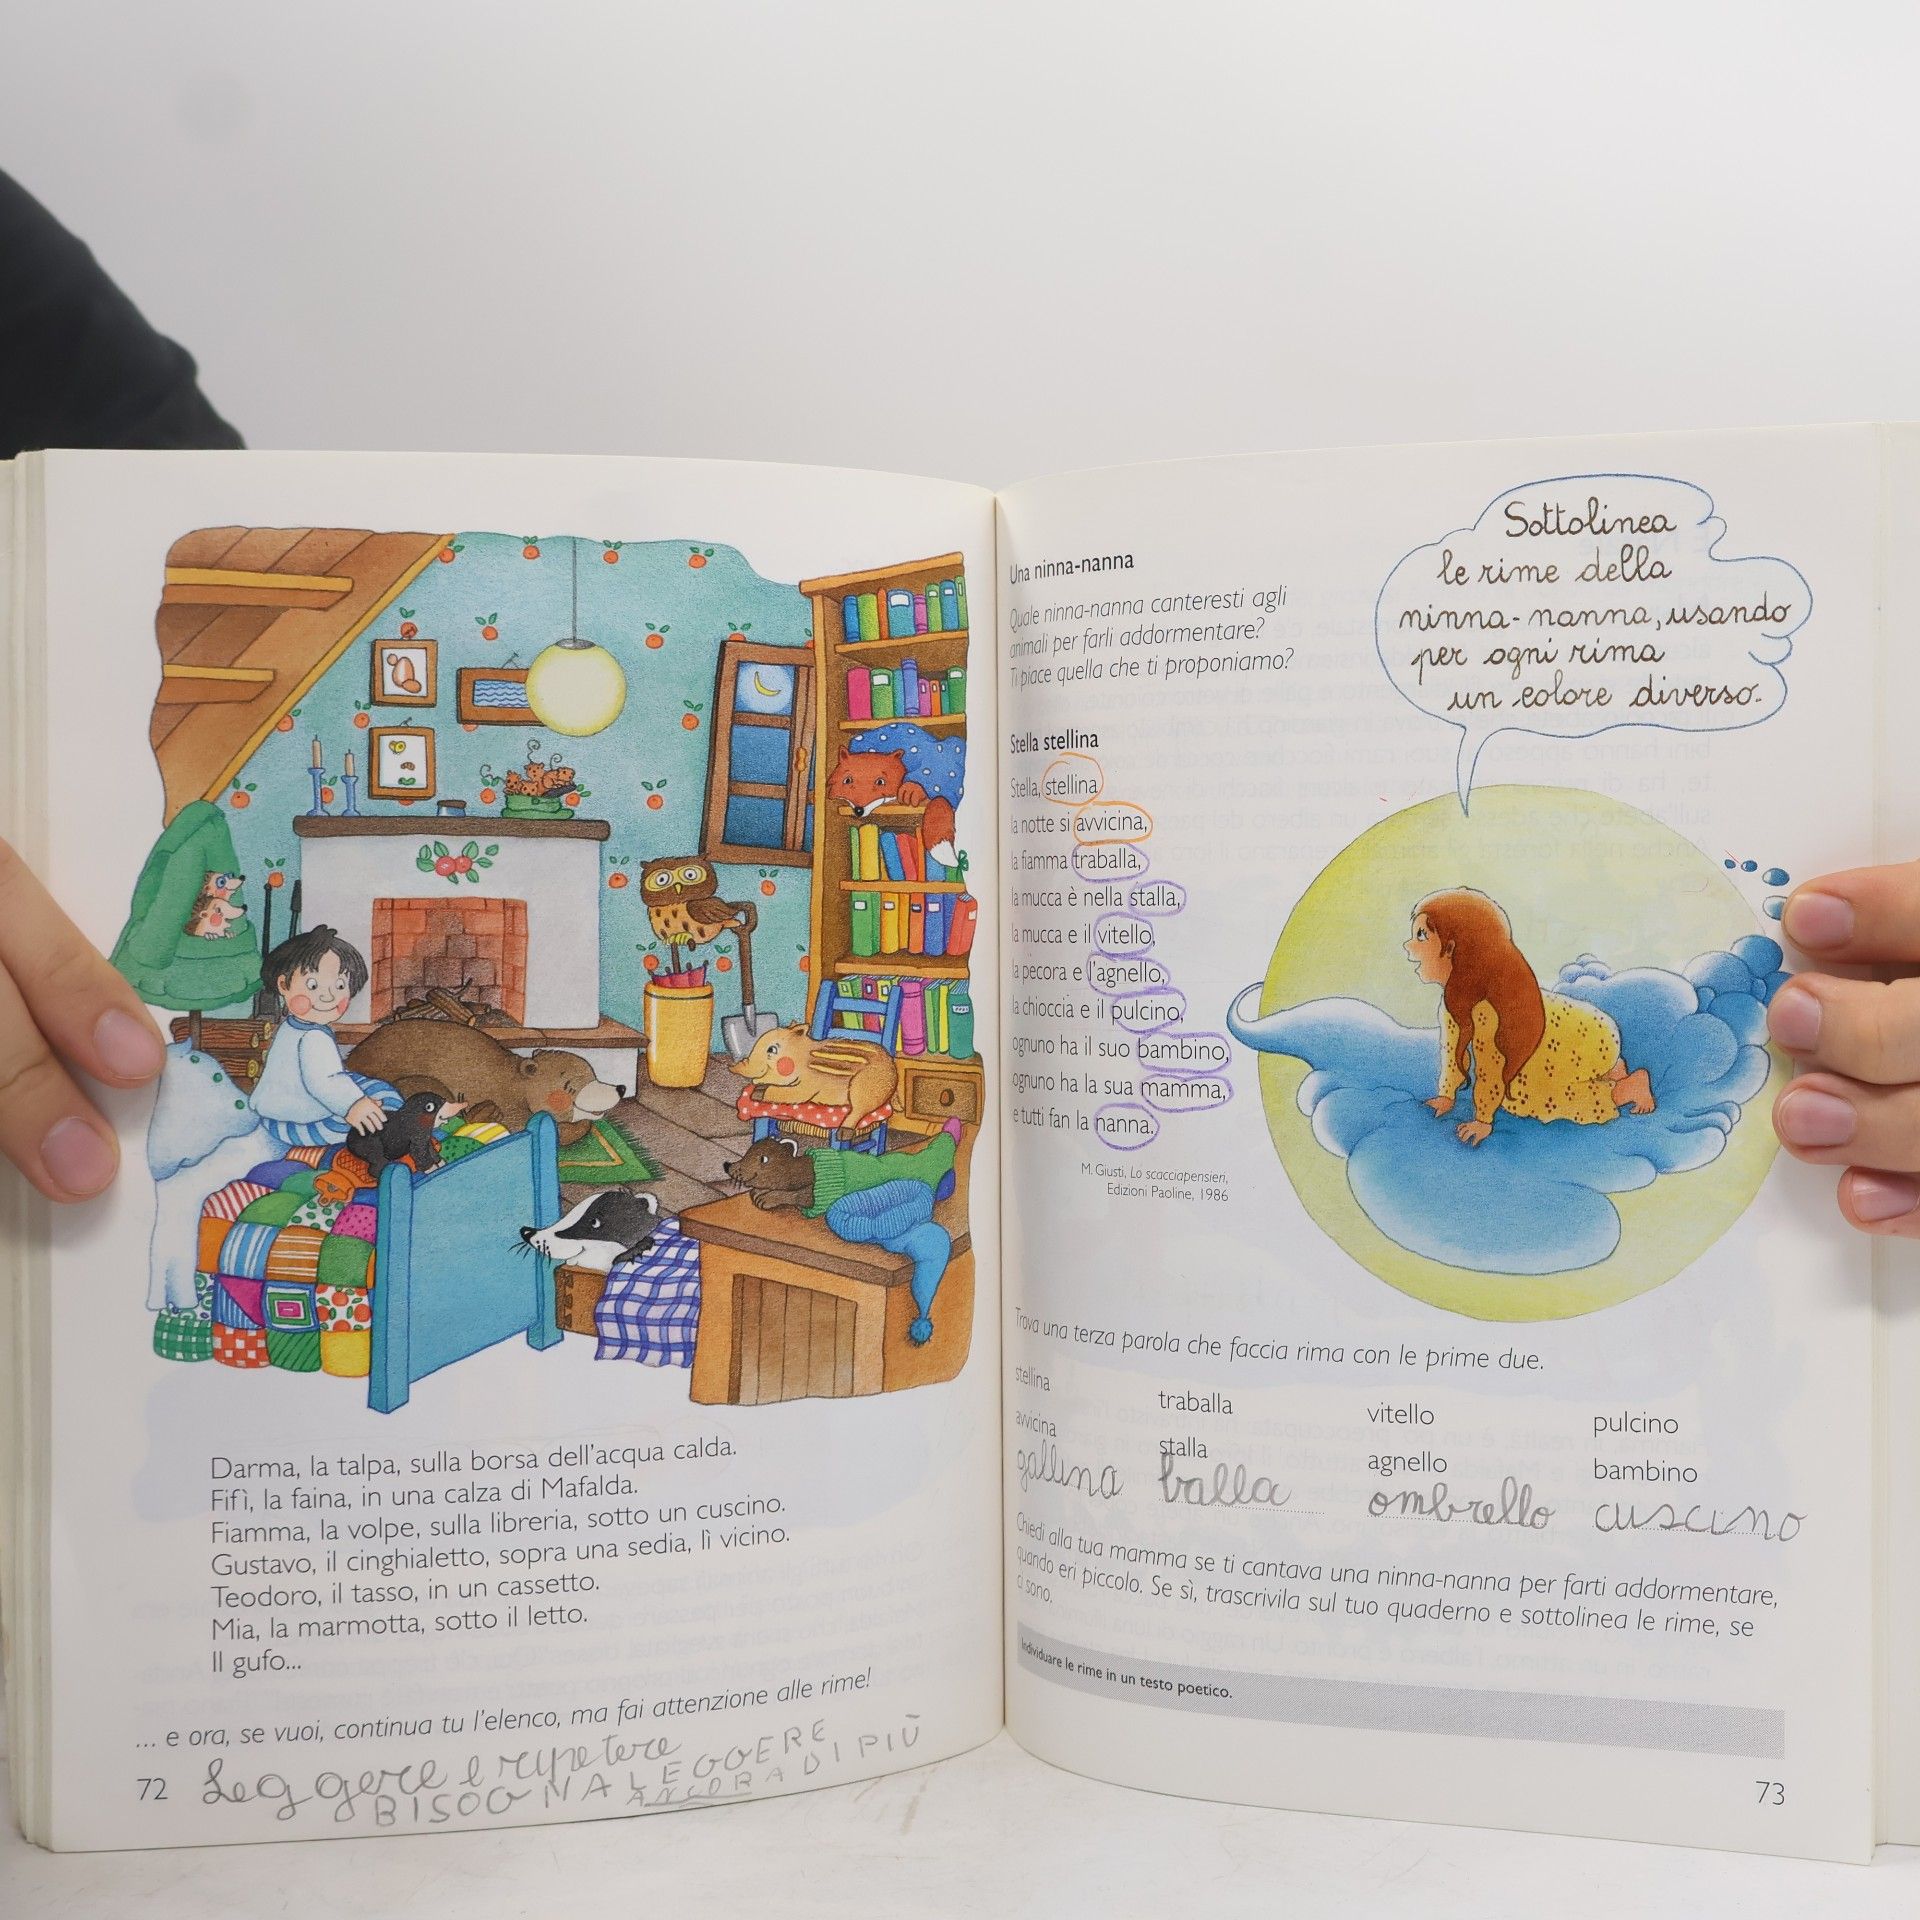 Darma, la talpa, sulla borsa dell'acqua calda.
Fifì, la faina, in una calza di Mafalda.
Fiamma, la volpe, sulla libreria, sotto un cuscino.
Gustavo, il cinghialetto, sopra una sedia, lì vicino.
Teodoro, il tasso, in un cassetto.
Mia, la marmotta, sotto il letto.
Il gufo...
... e ora, se vuoi, continua tu l'elenco, ma fai attenzione alle rime!
Leggere e ripetere
BISOGNA LEGGERE
ANCORA DI PIÙ
72
Una ninna-nanna
Quale ninna-nanna canteresti agli
animali per farli addormentare?
Ti piace quella che ti proponiamo?
Sottolinea
le rime della
ninna-nanna, usando
per ogni rima
un colore diverso.
Stella stellina
Stella, stellina
la notte si avvicina,
la fiamma traballa,
la mucca è nella stalla,
la mucca e il vitello,
la pecora e l'agnello,
la chioccia e il pulcino,
ognuno ha il suo bambino,
ognuno ha la sua mamma,
e tutti fan la nanna.
M. Giusti, Lo scacciapensieri,
Edizioni Paoline, 1986
Trova una terza parola che faccia rima con le prime due.
stellina traballa vitello pulcino
avvicina stalla agnello bambino
gallina balla ombrello cuscino
Chiedi alla tua mamma se ti cantava una ninna-nanna per farti addormentare,
quando eri piccolo. Se sì, trascrivila sul tuo quaderno e sottolinea le rime, se
ci sono.
Individuare le rime in un testo poetico.
73